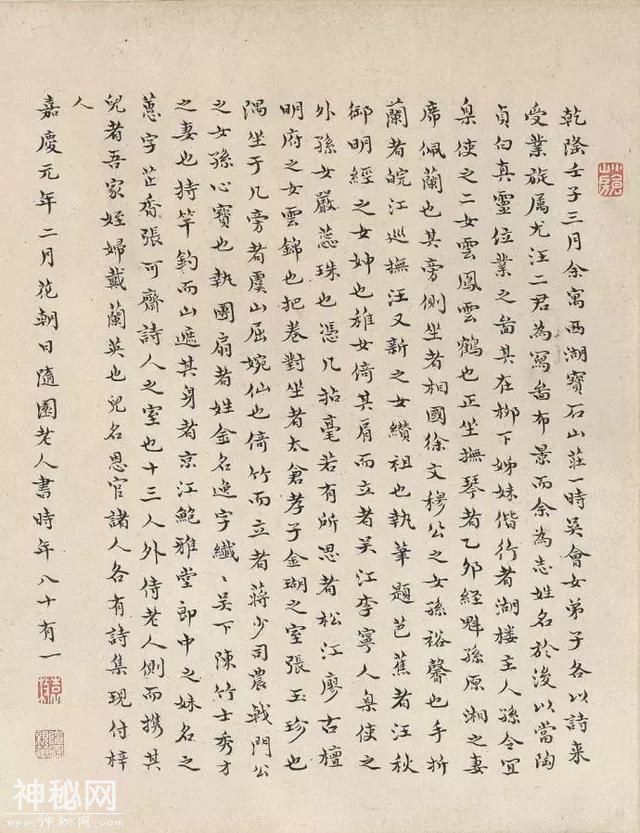 乾隆壬子三月余寓西湖寶石山莊一時吳會女弟子各以詩来
受業旋属尤汪二君為寫啚布景而余為志姓名於後以當陶
貞白真靈位業之啚其在柳下姊妹偕行者湖楼主人孫令宜
臬使之二女雲鳳雲鶴也正坐撫琴者乙夘經魁孫原湘之妻
席佩蘭也其旁側坐者相國徐文穆公之女孫裕馨也手折
蘭者皖江巡撫汪又新之女纘祖也執筆題芭蕉者汪秋
御明經之女妽也稚女倚其肩而立者吴江李寧人臬使之
外孫女嚴蕊珠也憑几拈毫若有所思者松江廖古檀
明府之女雲錦也把卷對坐者太倉孝子金瑚之室張玉珍也
隅坐于几旁者虞山屈婉仙也倚竹而立者蔣少司農戟門公
之女孫心寶也執團扇者姓金名逸字纖〻吴下陳竹士秀才
之妻也持竿釣而山遮其身者京江鮑雅堂郎中之妹名之
蕙字茝香張可齋詩人之室也十三人外侍老人側而攜其
兒者吾家姪婦戴蘭英也兒名恩官諸人各有詩集現付梓
人
嘉慶元年二月花朝日隨園老人書時年八十有一
神秘网